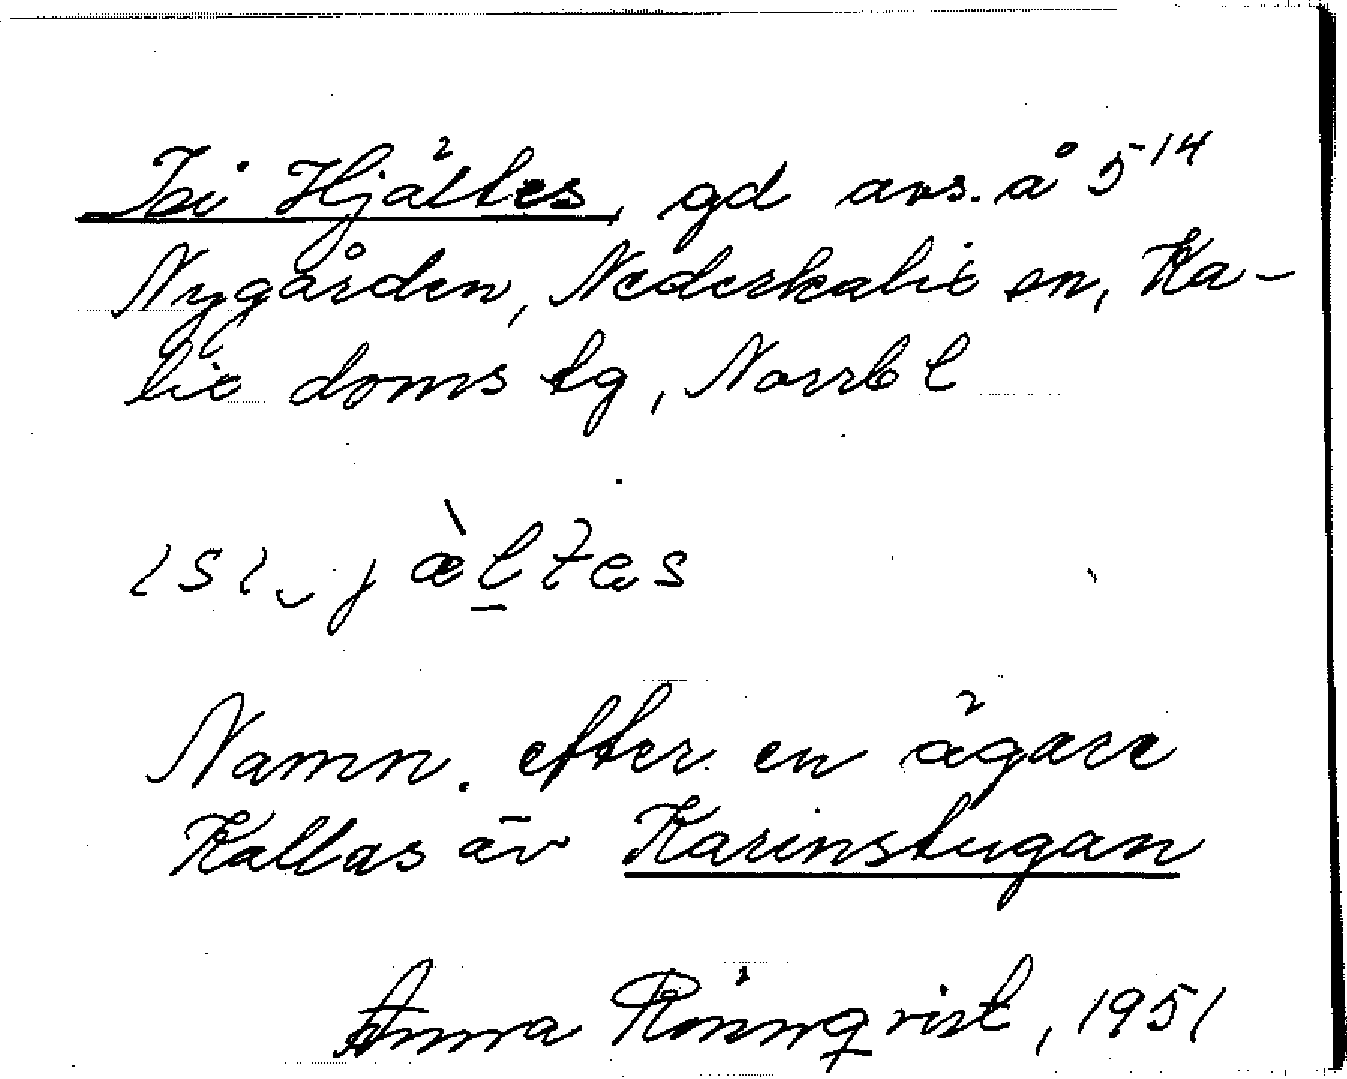 Isi Hjältes, gd avs. å 5¹⁴
Nygården, Nederkalix sn, Ka-
lix doms tg, Norrb l
ɩsɩ‿jæ̀l̠tæs
Namn. efter en ägare
Kallas äv Karinstugan
Anna Rönnqvist, 1951